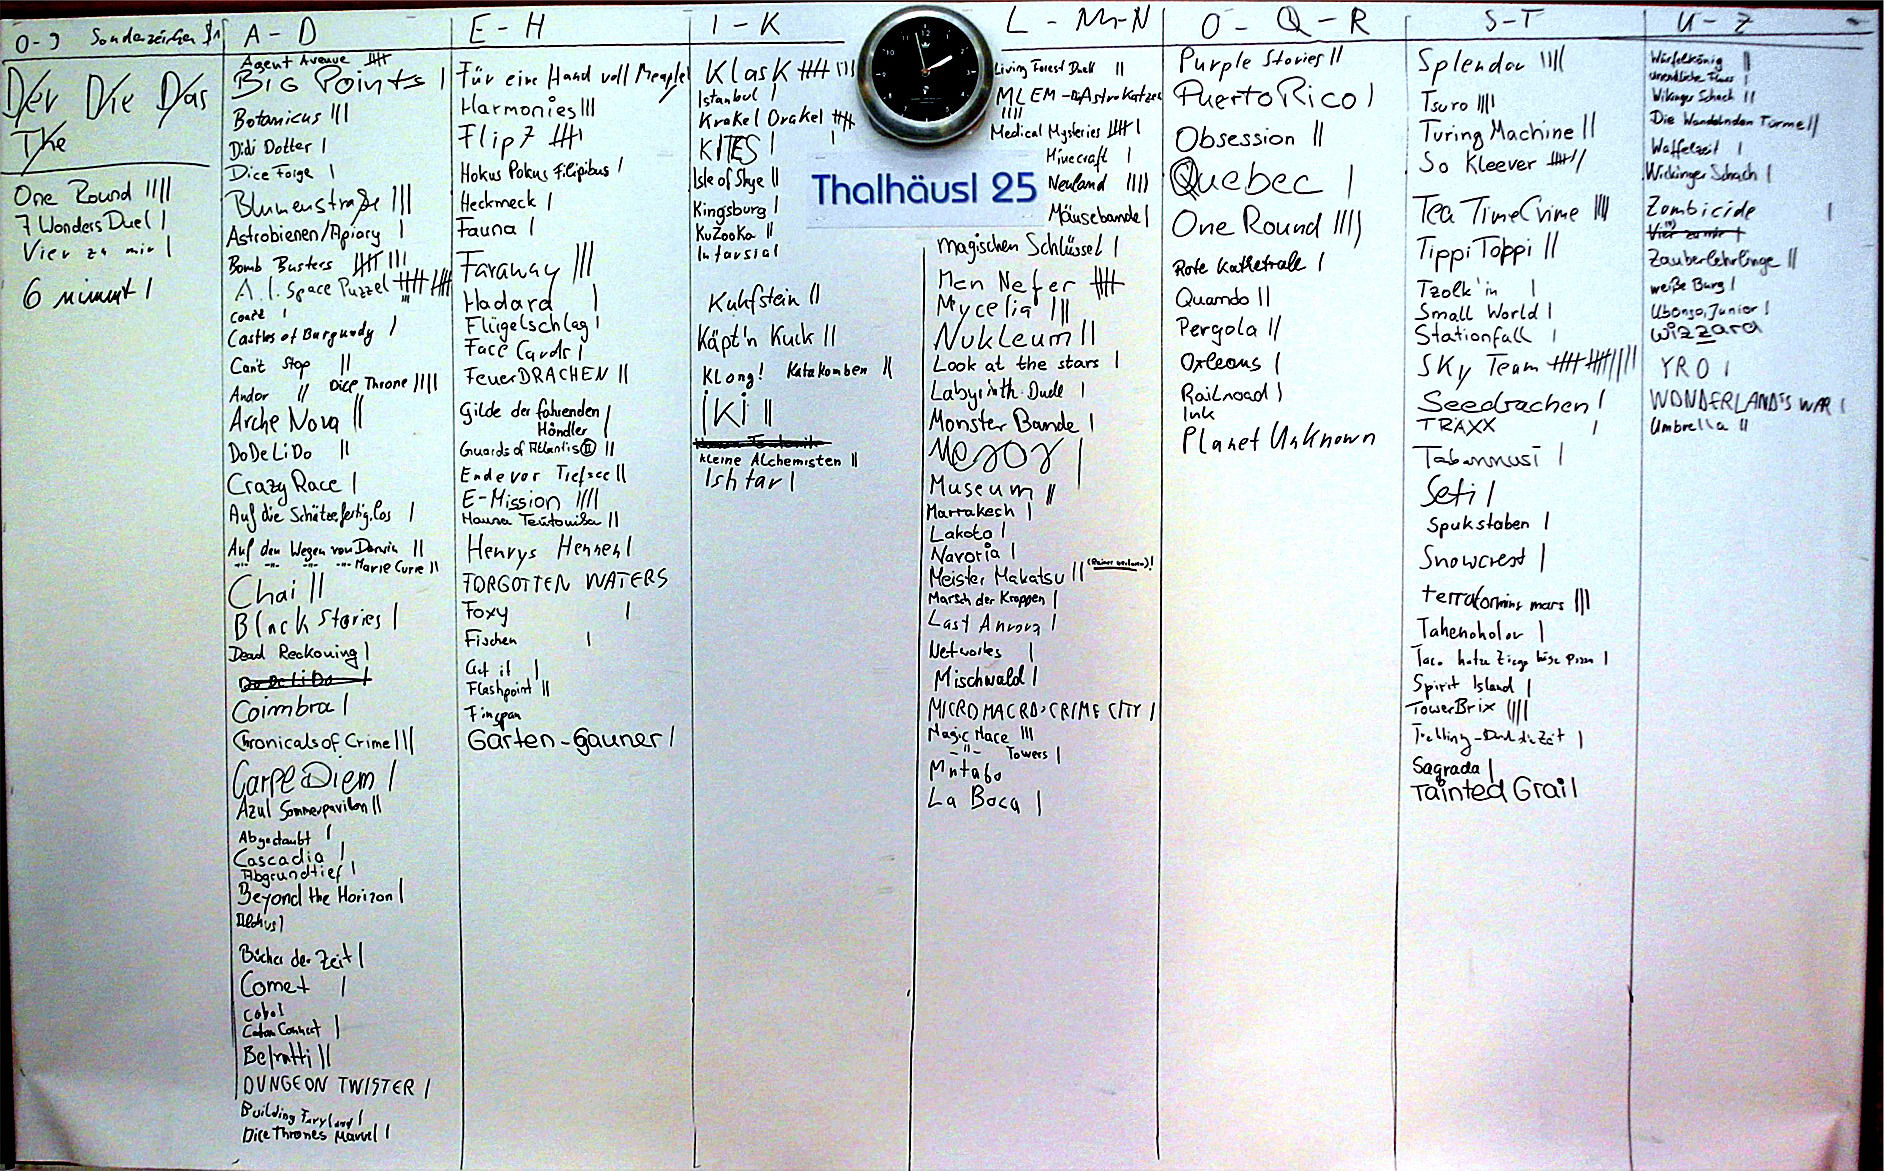 0-9 Sonderzeichen
Der Die Das
The
One Round ||||
7 Wonders Duel |
Vier zu mir |
6 nimmt |
A - D
Agent Avenue 卌
BIG Points |
Botanicus |||
Didi Dotter |
Dice Forge |
Blumenstraße |||
Astrobienen/Apiary |
Bomb Busters 卌 |||
A.I. Space Puzzel 卌 卌 |||
Coatl |
Castles of Burgundy |
Can't Stop ||
Andor || Dice Throne ||||
Arche Nova ||
DoDeLiDo ||
Crazy Race |
Auf die Schätze, fertig, los |
Auf den Wegen von Darwin ||
-"- -"- -"- -"- Marie Curie ||
Chai ||
Black Stories |
Dead Reckoning |
DoDeLiDo |
Coimbra |
Chronicals of Crime |||
Carpe Diem |
Azul Sommerpavillon ||
Abgestaubt |
Cascadia |
Abgrundtief |
Beyond the Horizon |
Bücher der Zeit |
Comet |
Cabo |
Catan Connect |
Belratti ||
DUNGEON TWISTER |
Building Fairyland |
Dice Thrones Marvel |
E - H
Für eine Hand voll Meeple |
Harmonies |||
Flip 7 卌
Hokus Pokus Filipibus |
Heckmeck |
Fauna |
Faraway |||
Hadara |
Flügelschlag |
Face Cards |
FeuerDRACHEN ||
Gilde der fahrenden
Händler |
Guards of Atlantis II ||
Endevor Tiefsee ||
E-Mission ||||
Hansa Teutonika ||
Henrys Hennen |
FORGOTTEN WATERS
Foxy |
Fischen |
Get it |
Flashpoint ||
Finspan
Garten-Gauner |
I - K
KlasK 卌 |||
Istanbul |
Krakel Orakel 卌 |
KITES |
Isle of Skye ||
Kingsburg |
KuZooKa ||
Intarsia |
Kuhfstein ||
Käpt'n Kuck ||
Klong! Katakomben ||
iKi ||
kleine Alchemisten ||
Ishtar |
Thalhäusl 25
L - M-N
Living Forest Duell ||
MLEM - D. AstroKatzen
||||
Medical Mysteries 卌 |
Minecraft |
Neuland ||||
Mäusebande |
magischen Schlüssel |
Men Nefer 卌
Mycelia |||
Nukleum ||
Look at the stars |
Labyrinth Duell |
Monster Bande |
Mesos |
Museum ||
Marrakesh |
Lakota |
Navoria |
Meister Makatsu || (Rainer verloren)!
Marsch der Krappen |
Last Aurora |
Networks |
Mischwald |
MICRO MACRO: CRIME CITY |
Magic Maze |||
-"- Towers |
Mntabo
La Boca |
O - Q - R
Purple Stories ||
Puerto Rico |
Obsession ||
Quebec |
One Round ||||
Rote Kathetrale |
Quando ||
Pergola ||
Orleans |
Railroad |
Ink
Planet Unknown
S-T
Splendor ||||
Tsuro ||||
Turing Machine ||
So Kleever 卌 |
Tea Time Crime ||||
Tippi Toppi ||
Tzolk'in |
Small World |
Stationfall |
Sky Team 卌 卌 ||||
Seedrachen |
TRAXX |
Tabannusi |
Seti |
Spukstaben |
Snowcrest |
terraforming mars |||
Tahenokolor |
Taco hatze Ziege böse Pizza |
Spirit Island |
TowerBrix ||||
Sagrada |
Tainted Grail
U - Z
Würfelkönig ||
unendliche Fluss |
Wikinger Schach ||
Die Wandelnden Türme ||
Waffelzeit |
Wickinger Schach |
Zombicide |
Vier zu mir |
Zauberlehrlinge ||
weiße Burg |
Ubongo, Junior |
Wizzard
YRO |
WONDERLANDS WAR |
Umbrella ||